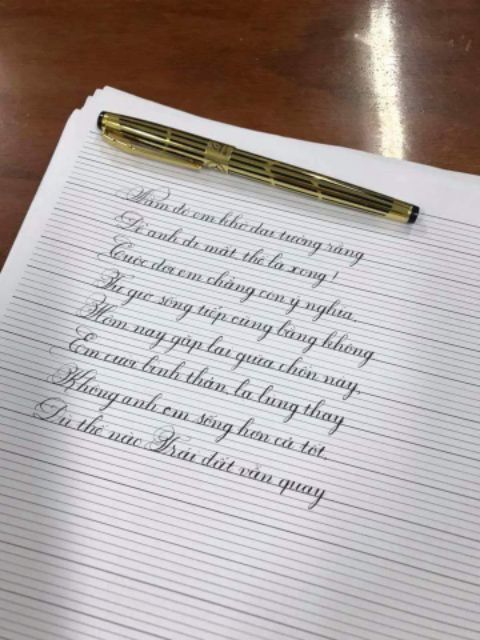 Năm đó em khờ dại tưởng rằng
Để anh đi mất thế là xong!
Cuộc đời em chẳng còn ý nghĩa.
Từ giờ sống tiếp cũng bằng không
Hôm nay gặp lại giữa chốn này,
Em cười bình thản, lạ lùng thay
Không anh em sống hơn cả tốt.
Dù thế nào Trái đất vẫn quay